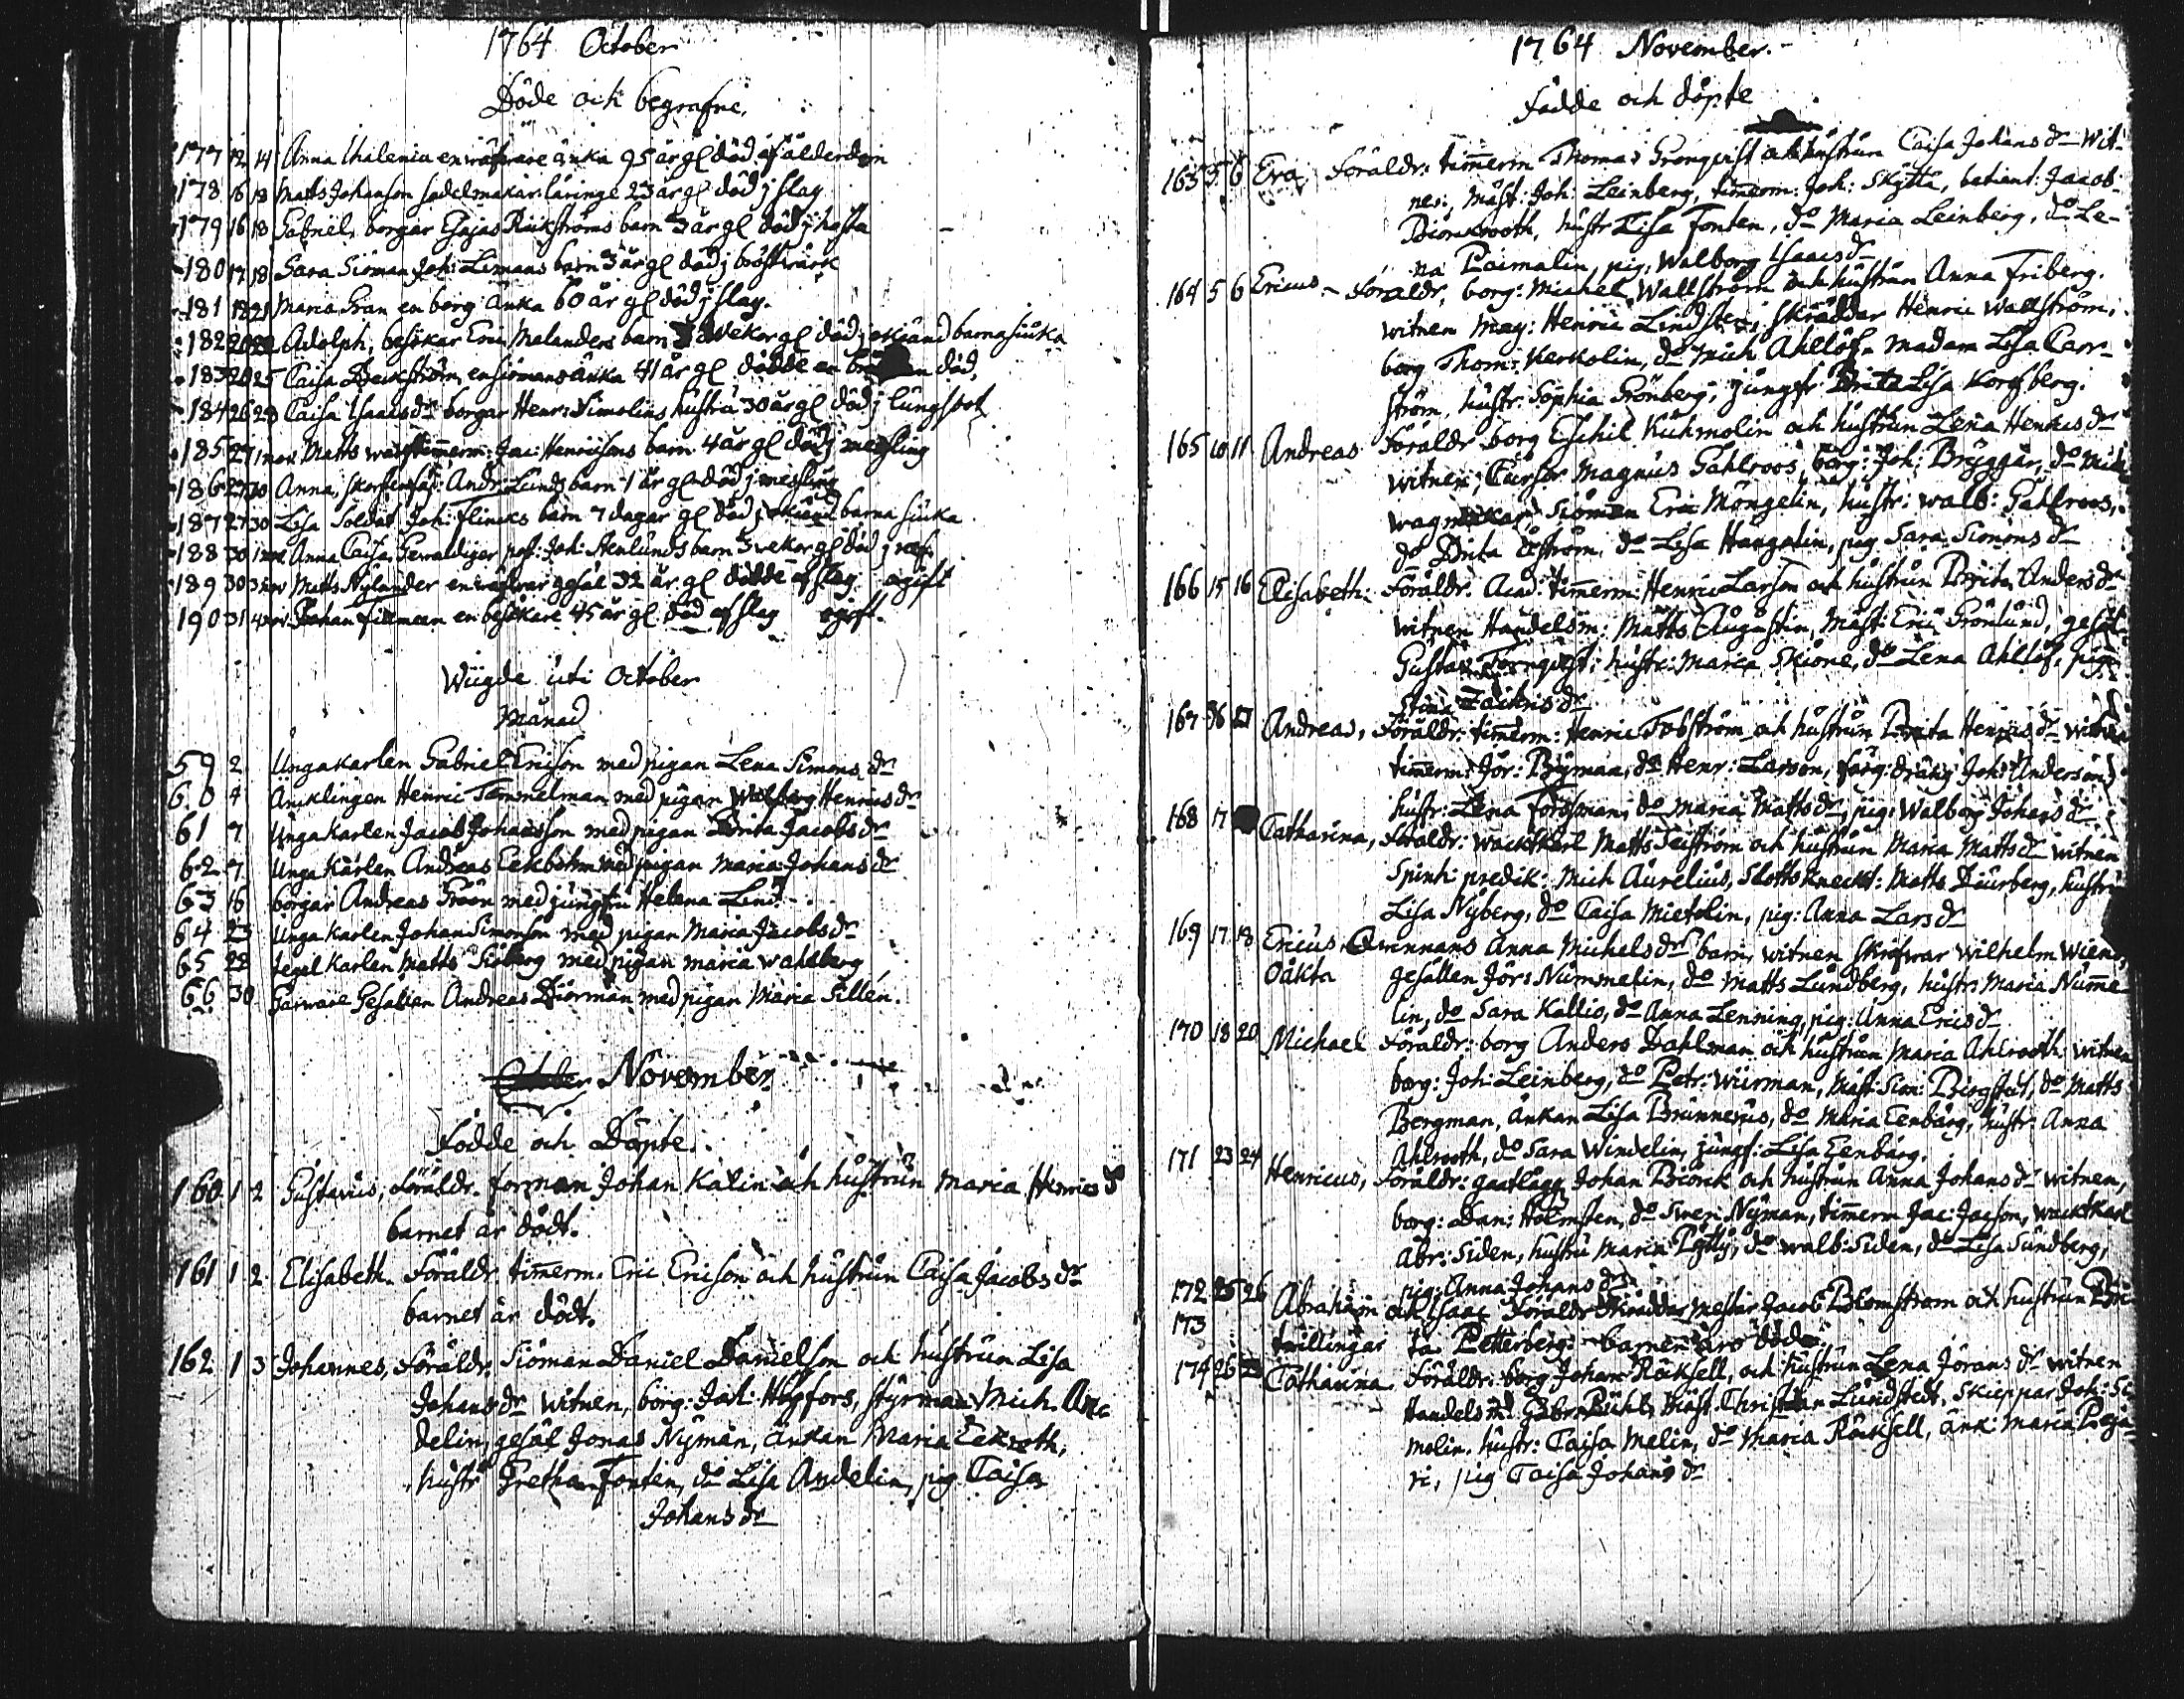 1764 October
Döde och begrafne.
177 12 14 Anna Thalenia en änka 95 år gl död af ålderdom
178 16 18 Matts Johanson sadelmakar läringe 23 år gl död j slag
179 16 18 Gabriel, borgar Esajas barn 3 år gl död j hasta
180 17 18 Sara Sioman Joh: Limans barn 3 år gl död j bröstwärk
181 18 21 Maria Gran en borg änka 60 år gl död j slag.
182 20 22 Adolph, besökar Eric Melanders barn wekor gl död j okiänd barnasiuka
183 20 25 Caisa Beckström, en siömans änka 41 år gl dödde en död,
184 26 28 Caisa Isaacs dr borgar Henr: Simolins hustru 30 år gl död j lungsot
185 27 1 nov Matts timerm: Jac: Henricsons barn 4 år gl död j messling
186 27 30 Anna, Andr: Lunds barn 1 år gl död j messling
187 27 30 Lisa Soldat Joh: Flincks barn 7 dagar gl död j okiänd barna siuka
188 30 1 nov Anna Caisa, Gewaldiger Joh: Stenlunds barn 3 wekor gl död j
189 30 3 nov Matts Nylander en gesäl 32 år gl dödde af slag ogift
190 31 4 nov Johan Fileman en besökare 45 år gl död af slag ogift.
Wiigde uti October
Månad
59 2 Ungakarlen Gabriel Ericson med pigan Lena Simons dr
60 4 Ancklingen Henric Tammelman med pigan Walborg Henrics dr
61 7 Ungakarlen Jacob Johansson med pigan Brita Jacobs dr
62 7 Ungakarlen Andreas Eekbohm med pigan Maria Johans dr
63 16 borgar Andreas Gröön med jungfru Helena Lind
64 23 Ungakarlen Johan Simonson med pigan Maria Jacobs dr
65 28 tegel karlen Matts Siöberg med pigan Maria Wahlberg
66 30 Garware Gesällen Andreas Biörman med pigan Maria Sillén.
October November
Födde och Döpte.
160 1 2 Gustavus, Föräldr. forman Johan Kalin och hustrun Maria Henrics d
barnet är dödt.
161 1 2 Elisabeth. Föräldr timerm. Eric Ericson och hustrun Caisa Jacobs dr
barnet är dödt.
162 1 3 Johannes, Föräldr. Siöman Daniel Danielson och hustrun Lisa
Johans dr witnen, borg: Joh: Högfors, styrman Mich. An
delin, gesäl Jonas Nyman, änkan Maria Eekroth,
hustr Gretha Fonten, do Lisa Andelin, pig Caisa
Johans dr
1764 November.
Födde och döpte
163 5 6 Eva, Föräldr. timerm Thomas Grönqvist och hustrun Caisa Johans dr Wit-
nen, Mäst: Joh: Leinberg, timerm: Joh: Skytta, betiänt: Jacob
Biörkrooth, hustr Lisa Fonten, do Maria Leinberg, do Le-
na Paimalin, pig: Walborg Isaacs dr
164 5 6 Ericus. Föräldr, borg: Michel Wallström och hustrun Anna Friberg.
witnen Mag: Henric Lindsten, Skräddar Henric Wallström,
borg Thom: Kerkolin, do Mich Ahllöf. Madam Lisa Carr-
ström, hustr: Sophia Grönberg, jungfr Brita Lisa Korsberg.
165 10 11 Andreas Föräldr borg Eschil Kuhmolin och hustrun Lena Henrics dr
witnen; Cursor Magnus Gahlroos, borg: Joh: Bryggar, do Mich
wagnmakar, Siöman Eric Mongelin, hustr: Walb: Gahlroos,
do Brita Öström, do Lisa Haugalin, pig Sara Simons dr
166 15 16 Elisabeth. Föräldr. Acad: timerm: Henric Larson och hustrun Brita Anders dr
witnen Handelsm: Matts Augustin, Mäst: Eric Grönlund, gesäl
Gustav Törnqvist; hustr: Maria Skione, do Lena Ahllöf, pig:
Stina Zachris dr
167 16 17 Andreas, Föräldr. timerm: Henric Tobström och hustrun Brita Henrics dr witnen
timerm: Jör: Byman, do Henr: Larson, färg: dräng Joh: Anderson
hustr: Lena Forssman, do Maria Matts dr, pig: Walborg Johans dr
168 17 Catharina, Föräldr: wacktkarl Matts Teström och hustrun Maria Matts dr witnen
Spinh: predik: Mich Aurelius, Slottsknecht: Matts Diurberg, hustru
Lisa Nyberg, do Caisa Mietolin, pig: Anna Lars dr
169 17 18 Ericus Qwinnans Anna Michels dr barn, witnen skrifwar Wilhelm Wiens,
Oäkta gesällen Jors Nummelin, do Matts Lundberg, hustr: Maria Numme-
lin, do Sara Kallio, do Anna Lenning, pig: Anna Erics dr
170 18 20 Michael Föräldr: borg Anders Dahlman och hustrun Maria Ahlrooth, witnen
borg: Joh: Leinberg, do Petr: Wiirman, Mäst: Sim: Bergstedt, do Matts
Bergman, änkan Lisa Brunnerus, do Maria Eenbärg, hustr: Anna
Ahlrooth, do Sara Windelin, jungf: Lisa Eenbärg.
171 23 24 Henricus, Föräldr: Johan Biörck och hustrun Anna Johans dr witnen,
borg: Dan: Holmsten, do Swen Nyman, timerm Jac: Jacson, wacktkarl
Abr: Siden, hustru Maria Pytty, do Walb: Siden, do Lisa Sundberg,
pig: Anna Johans dr
172 25 26 Abraham och Isaac Föräldr Skräddar mester Jacob Blomström och hustrun Bri
173 twillingar ta Petterberg. barnen äro döde
174 26 Catharina. Föräldr: borg Johan Räcksell, och hustrun Lena Jörans dr witnen
Handelsm: Gabr Buhl, Mäst: Christian Lundstedt, Skieppar Joh: Si
molin. hustr: Caisa Melin, do Maria Räcksell, änk: Maria Prejä
ri, pig Caisa Johans dr